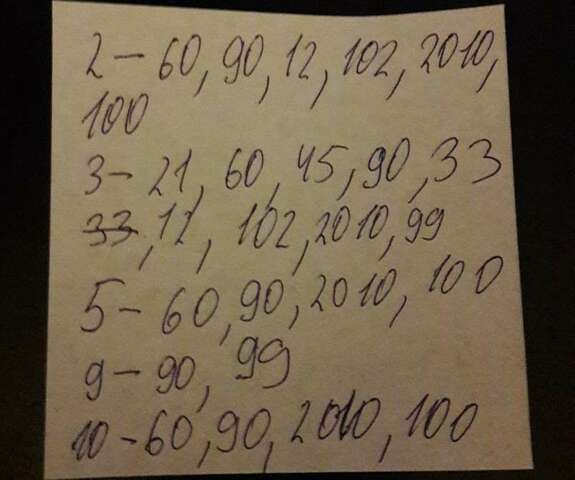 2 – 60, 90, 12, 102, 2010,
100
3 – 21, 60, 45, 90, 33
33, 12, 102, 2010, 99
5 – 60, 90, 2010, 100
9 – 90, 99
10 – 60, 90, 2010, 100